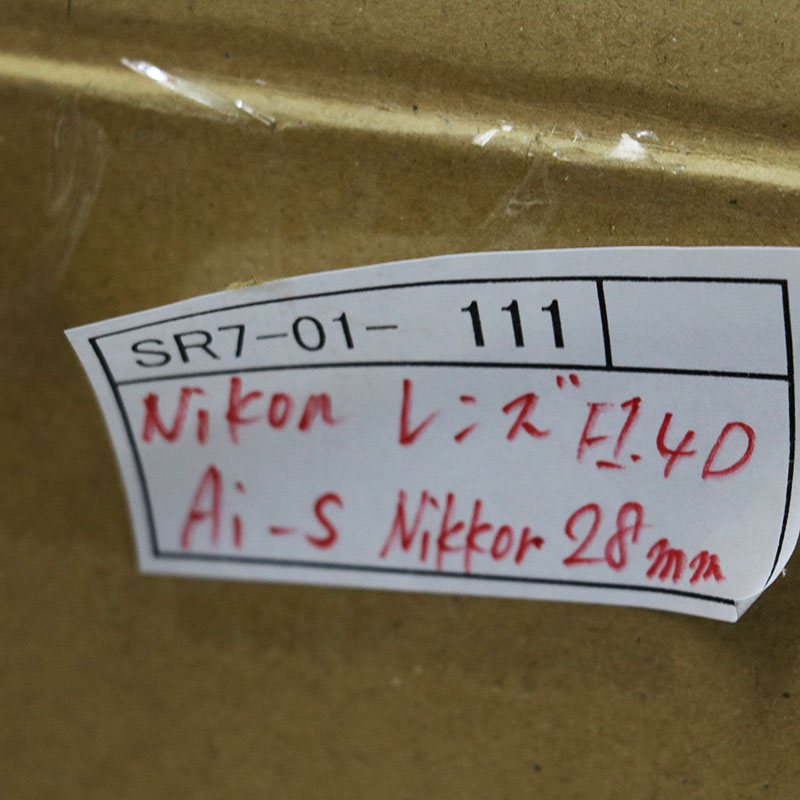 SR7-01- 111
Nikon レンズ F1.4D
Ai-S Nikkor 28mm